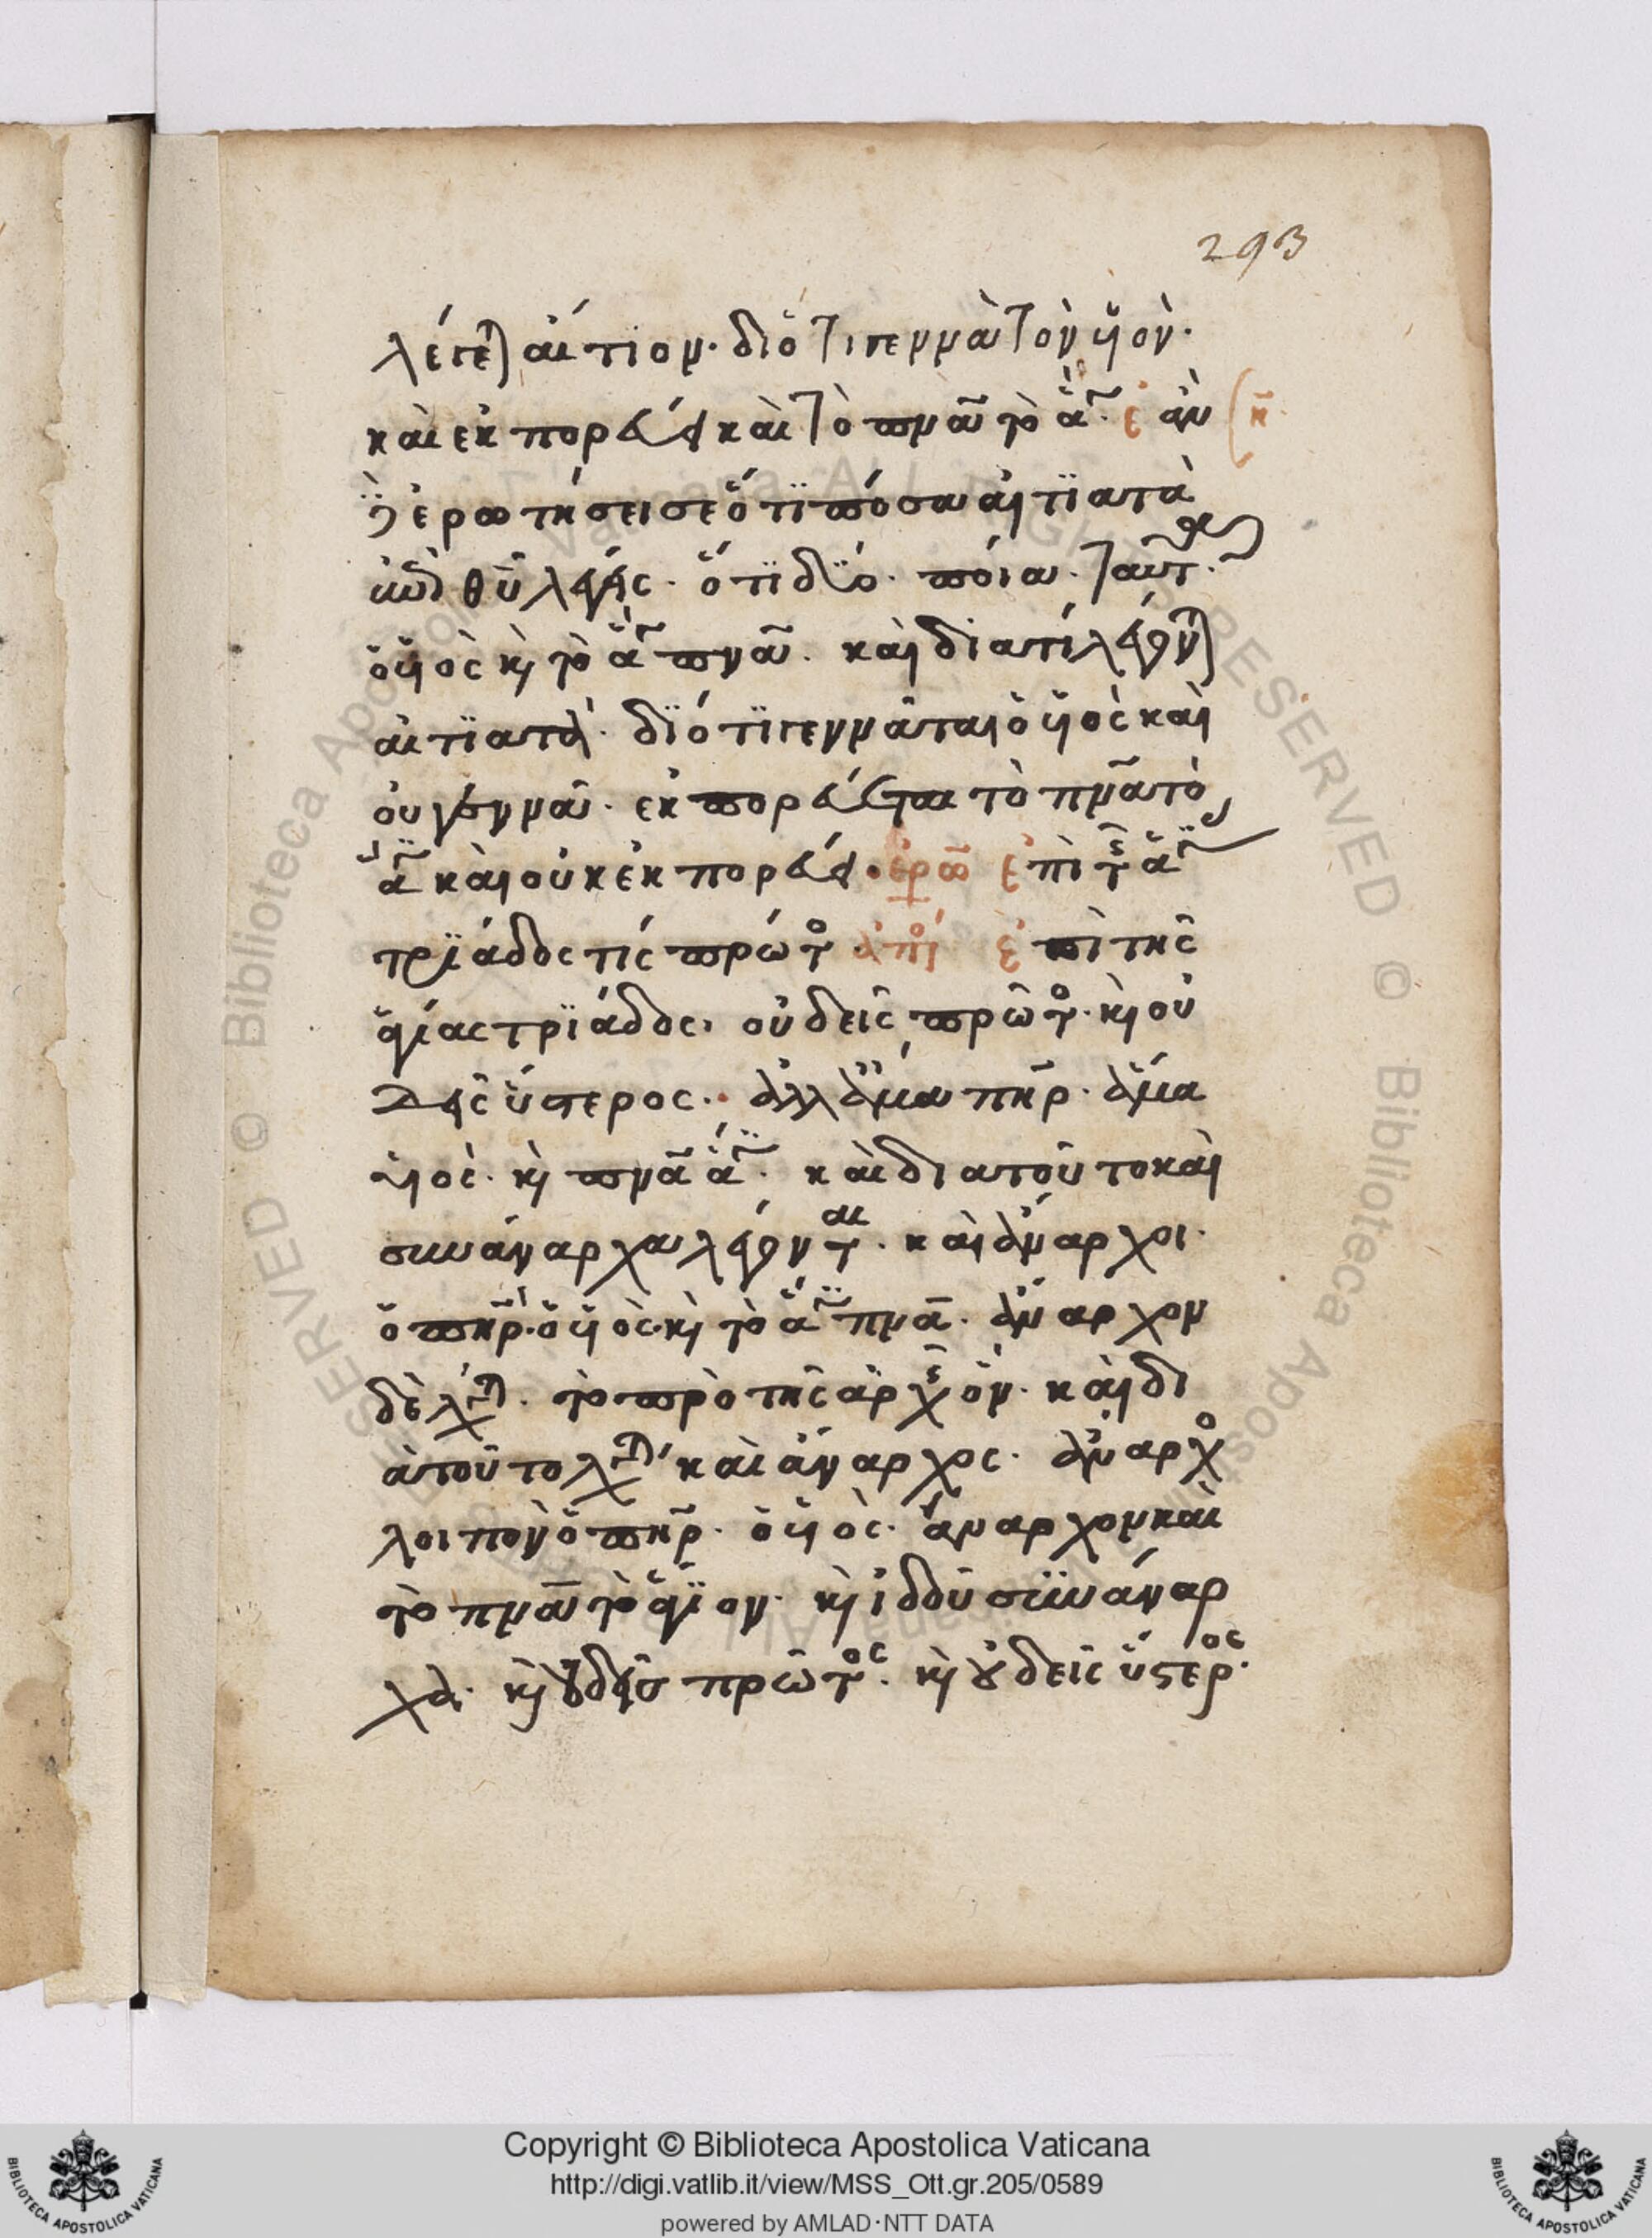 293
λέγεται αἴτιον· διότι γεννᾶ τὸν ὑϊὸν·
καὶ ἐκπορεύει καὶ τὸ πνᾶ τὸ ἅγ· ἐὰν
κ
δὲ ἐρωτήσει σε ὅτι πόσα αἰτϊατὰ
ὅτϊ δύο· ποία· ταῦτ·
ὁ ὑϊὸς κ τὸ ἅγ πνᾶ· καὶ διατί λέγονται
αἰτϊατὰ· δϊότϊ γεννᾶται ὁ ὑϊὸς καὶ
οὐ γεννᾶ· ἐκπορεύεται τὸ πνᾶ τὸ
ἅγ καὶ οὐκ ἐκπορεύει· ἐρω ἐπὶ τῆς ἁγ
τρϊάδος τίς πρώτος· ἀπό ἐπὶ τῆς
ἁγίας τρϊάδος· οὐδεὶς πρῶτος· κ οὐ
δεὶς ὕστερος· ἀλλ' ἅμα πηρ· ἅμα
ὑϊὸς· κ πνᾶ ἅγ· καὶ διατοῦτο καὶ
συνάναρχα λέγονται· καὶ ἄναρχοι·
ὁ πηρ· ὁ ὑϊὸς· κ τὸ ἅγ πνᾶ· ἄναρχον
δὲ λέγεται· τὸ πρὸ τῆς ἀρχῆς ὄν· καὶ δι
ὰτοῦτο λέγεται καὶ ἄναρχος· ἄναρχος
λοιπὸν ὁ πηρ· ὁ ὑϊὸς· ἄναρχον καὶ
τὸ πνᾶ τὸ ἅγϊον· κ ἰδοῦ συνάναρ
χα· κ οὐδεὶς πρῶτος· κ οὐδεὶς ὕστερος·
Copyright © Biblioteca Apostolica Vaticana
http://digi.vatlib.it/view/MSS_Ott.gr.205/0589
powered by AMLAD·NTT DATA